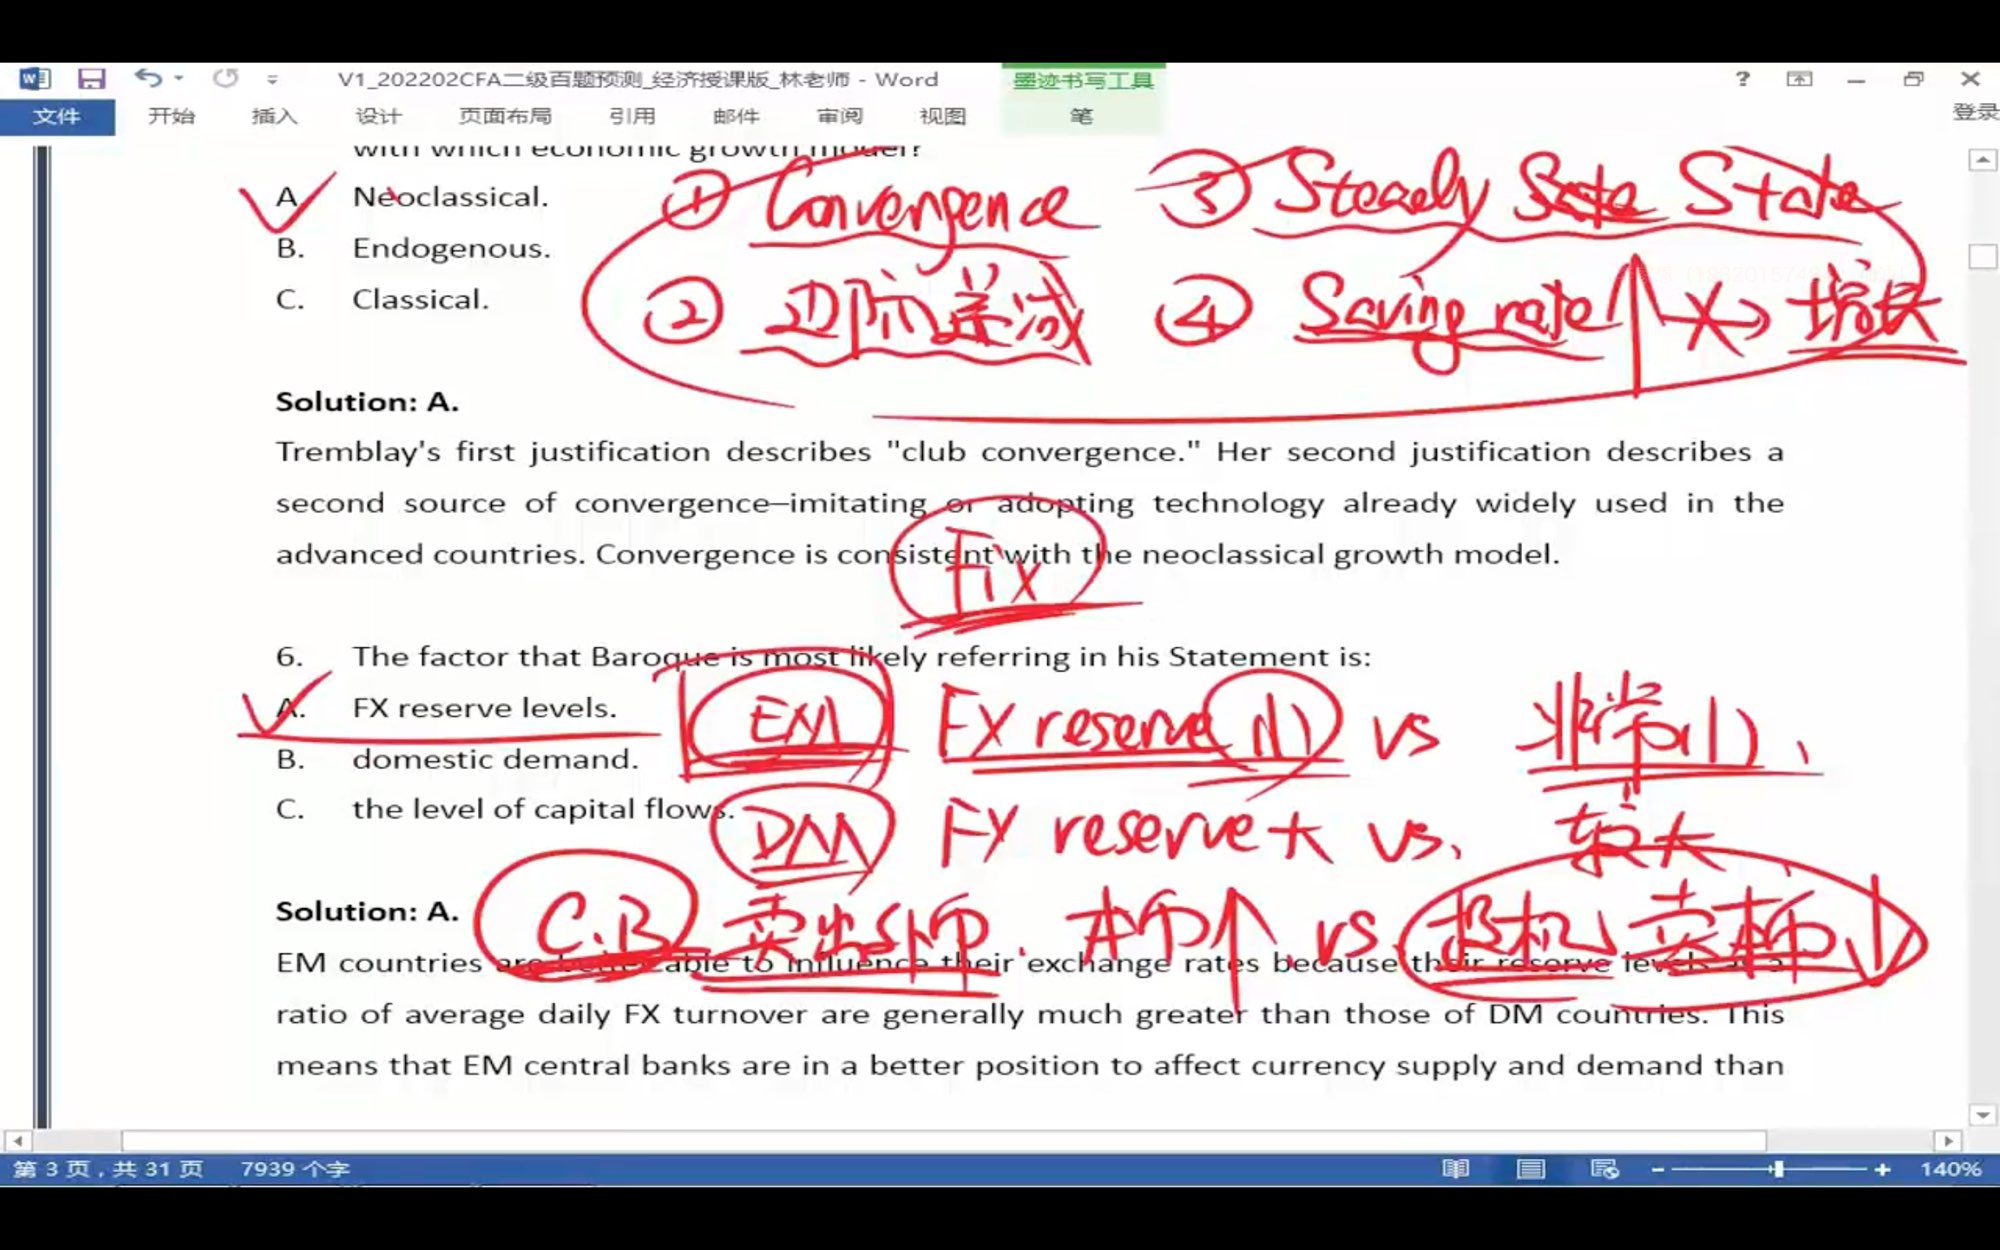 V1_202202CFA二级百题预测_经济授课版_林老师 - Word
墨迹书写工具
?
文件 开始 插入 设计 页面布局 引用 邮件 审阅 视图 笔
登录
with which economic growth model?
A. Neoclassical.
B. Endogenous.
C. Classical.
① Convergence ③ Steady State
② 边际递减 ④ Saving rate↑ → 增长
Solution: A.
Tremblay's first justification describes "club convergence." Her second justification describes a
second source of convergence–imitating or adopting technology already widely used in the
advanced countries. Convergence is consistent with the neoclassical growth model.
Fix
6. The factor that Baroque is most likely referring in his Statement is:
A. FX reserve levels.
EM FX reserve 小 vs 非常小
B. domestic demand.
C. the level of capital flows.
DM FX reserve 大 vs. 较大
Solution: A.
C.B 卖出外币. 本币↑ vs. 投机 卖本币↓
EM countries are better able to influence their exchange rates because their reserve levels as a
ratio of average daily FX turnover are generally much greater than those of DM countries. This
means that EM central banks are in a better position to affect currency supply and demand than
第 3 页，共 31 页 7939 个字
140%